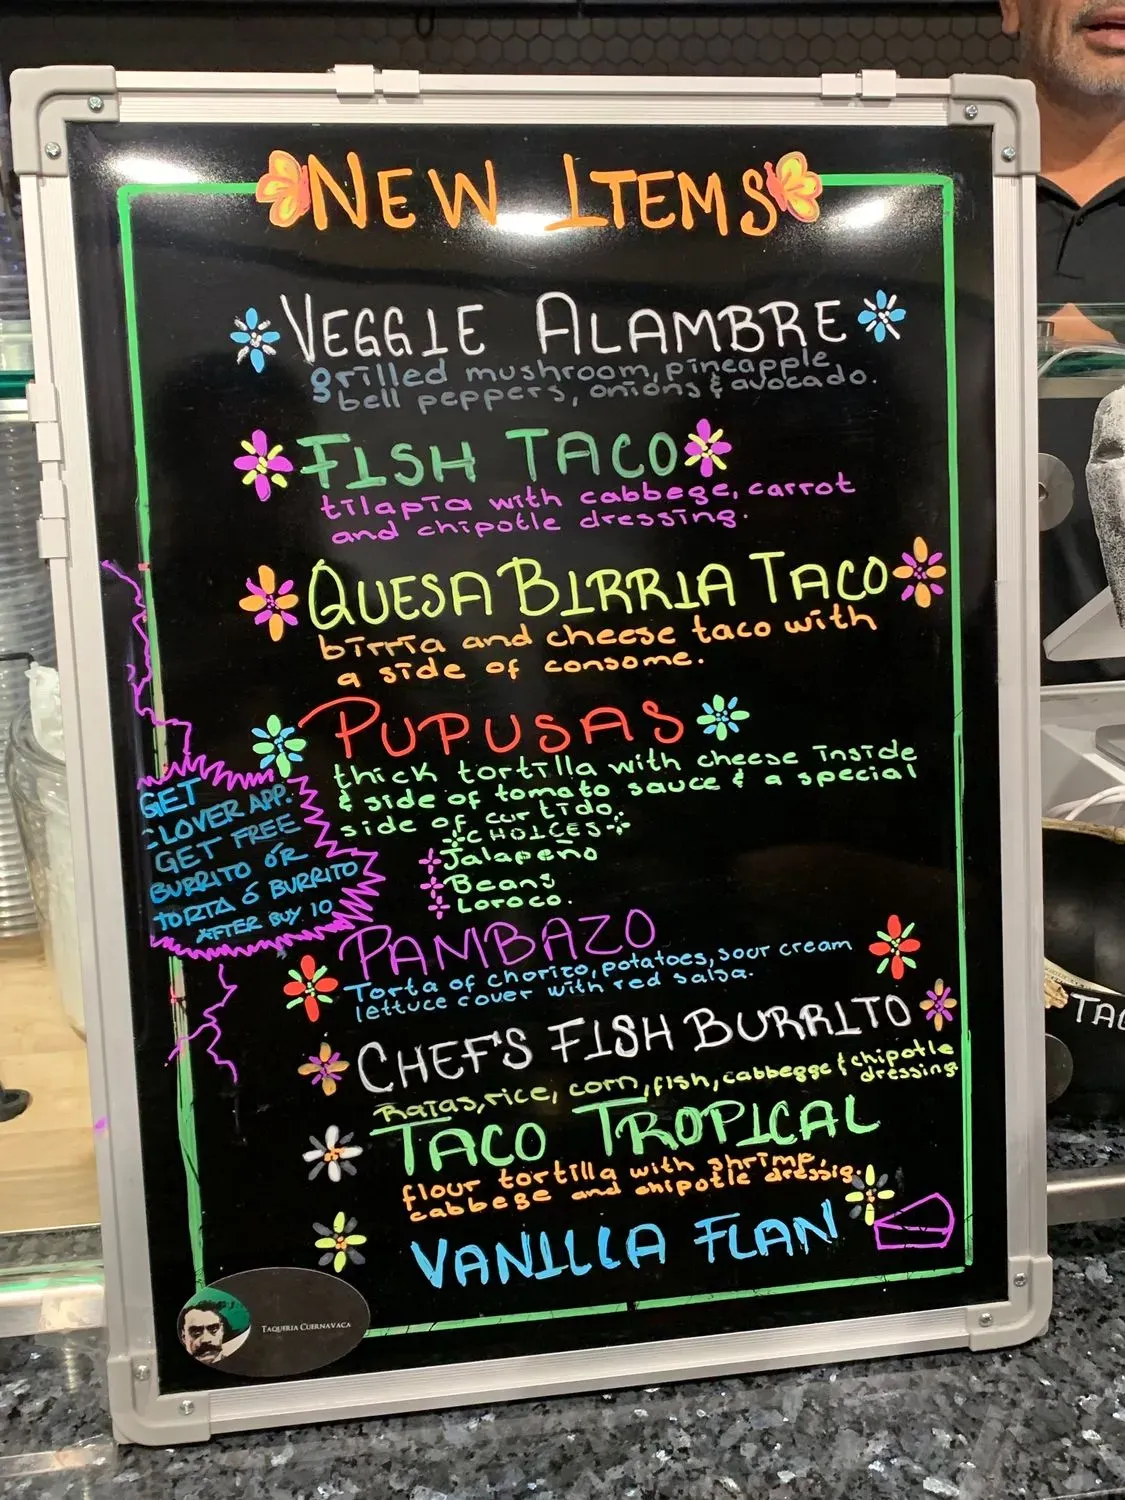 NEW ITEMS
VEGGIE ALAMBRE
grilled mushroom, pineapple
bell peppers, onions & avocado.
FISH TACO
tilapia with cabbege, carrot
and chipotle dressing.
QUESA BIRRIA TACO
birria and cheese taco with
a side of consome.
PUPUSAS
thick tortilla with cheese inside
& side of tomato sauce & a special
side of curtido.
CHOICES
Jalapeño
Beans
Loroco.
GET
CLOVER APP.
GET FREE
BURRITO ÓR
TORTA Ó BURRITO
AFTER BUY 10
PAMBAZO
Torta of chorizo, potatoes, sour cream
lettuce cover with red salsa.
CHEF'S FISH BURRITO
Raias, rice, corn, fish, cabbegge & chipotle
dressing
TACO TROPICAL
flour tortilla with shrimp,
cabbege and chipotle dressig.
VANILLA FLAN
TAQUERIA CUERNAVACA
TAC